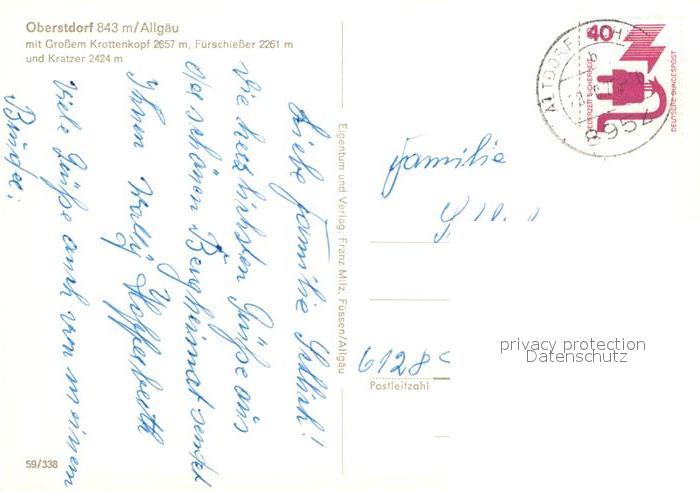 Oberstdorf 843 m/Allgäu
mit Großem Krottenkopf 2657 m, Fürschießer 2261 m
und Kratzer 2424 m
Liebe Familie
die herzlichsten Grüße aus
der schönen Bergheimat sendet
Ihnen
Viele Grüße auch von meinem
59/338
Eigentum und Verlag: Franz Milz, Füssen/Allgäu
40
JEDERZEIT SICHERHEIT
DEUTSCHE BUNDESPOST
8954
Familie
6128
Postleitzahl
privacy protection
Datenschutz